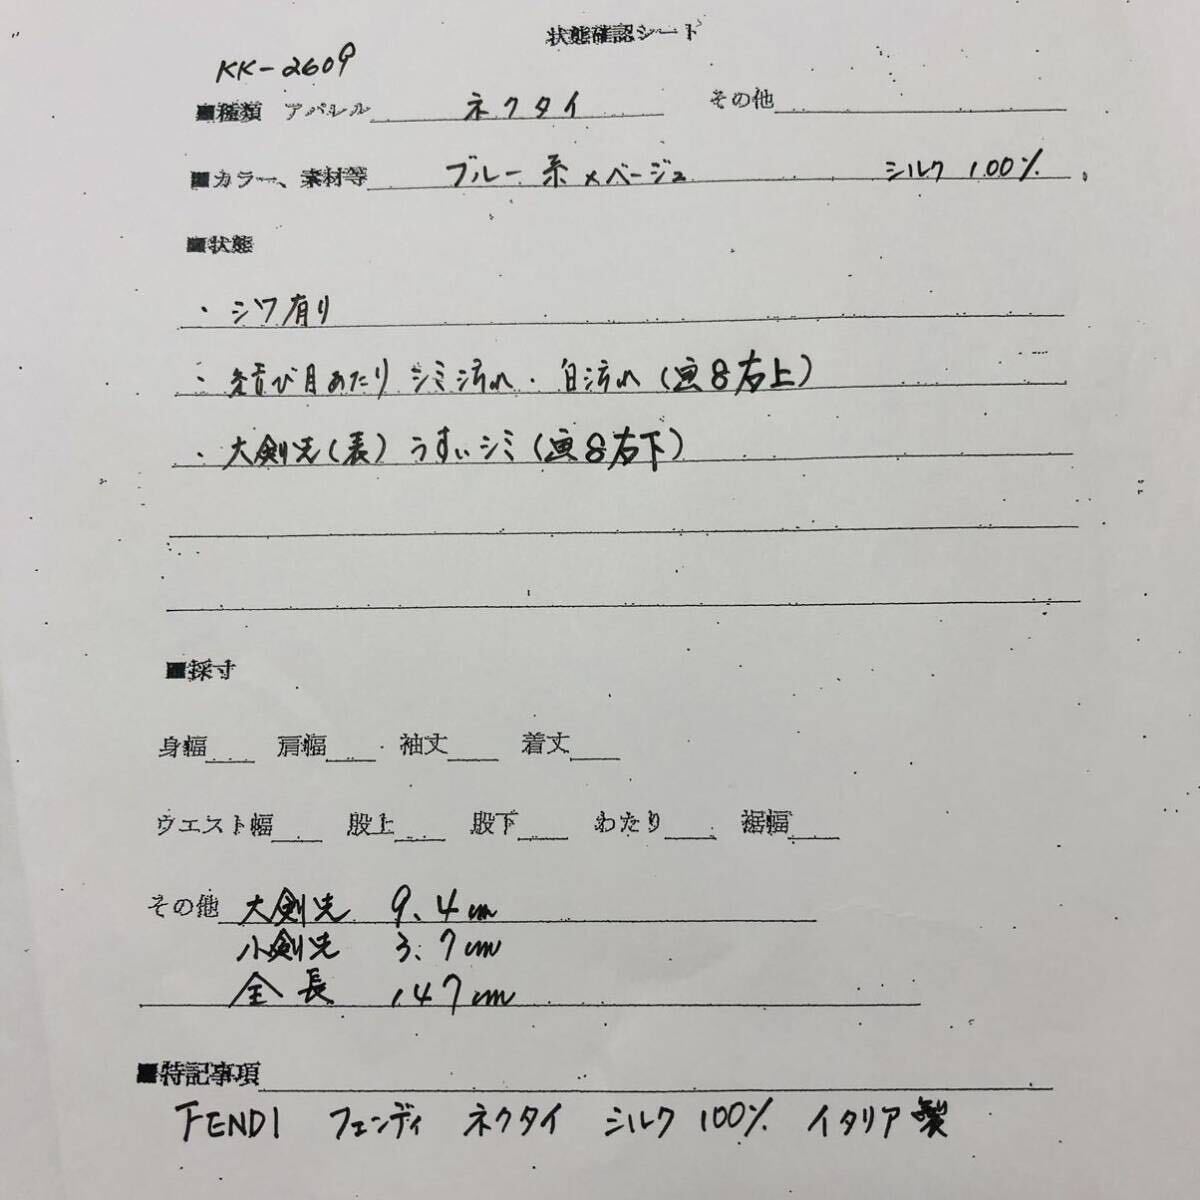 状態確認シート
KK-2609
■種類 アパレル ネクタイ その他
■カラー、素材等 ブルー系×ベージュ シルク 100%
■状態
・シワ有り
・結び目あたり シミ汚れ・白汚れ(画8右上)
・大剣先(表)うすいシミ(画8右下)
■採寸
身幅 肩幅 袖丈 着丈
ウエスト幅 股上 股下 わたり 裾幅
その他 大剣先 9.4cm
小剣先 3.7cm
全長 147cm
■特記事項
FENDI フェンディ ネクタイ シルク100% イタリア製